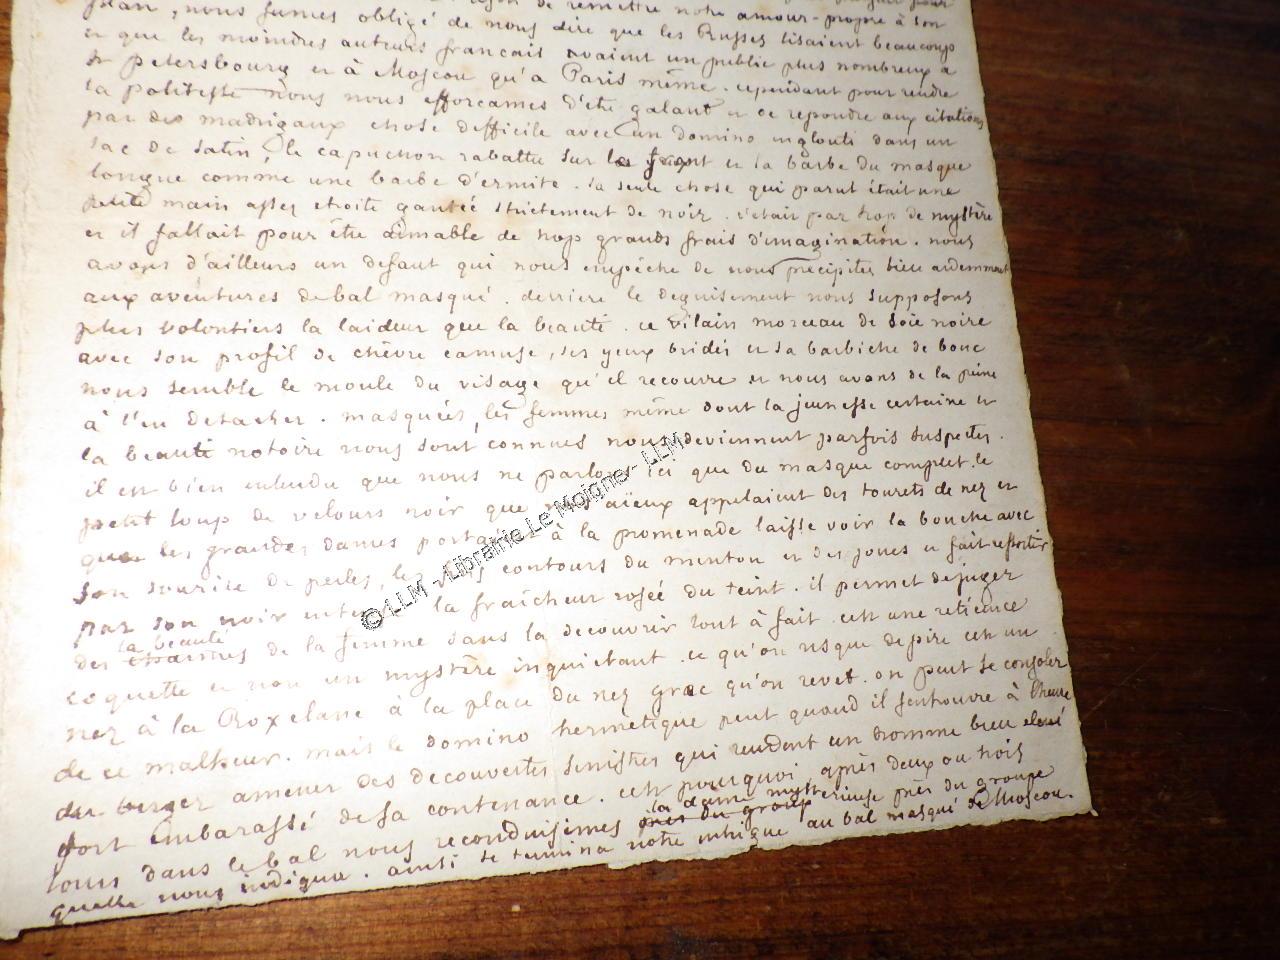 plan, nous fumes obligé de nous dire que les Russes lisaient beaucoup
et que les moindres auteurs francais avaient un public plus nombreux a
St petersbourg et à Moscou qu'a Paris même. cependant pour rendre
la politesse nous nous efforcames d'etre galant et de repondre aux citations
par des madrigaux chose difficile avec un domino englouti dans un
sac de satin, le capuchon rabattu sur le front et la barbe du masque
longue comme une barbe d'ermite. la seule chose qui parut était une
petite main assez etroite gantée strictement de noir. c'etait par trop de mystère
et il fallait pour être aimable de trop grands frais d'imagination. nous
avons d'ailleurs un defaut qui nous empêche de nous précipiter bien ardemment
aux aventures de bal masqué. derriere le deguisement nous supposons
plus volontiers la laideur que la beauté. ce vilain morceau de soie noire
avec son profil de chèvre camuse, ses yeux bridés et sa barbiche de bouc
nous semble le moule du visage qu'il recouvre et nous avons de la peine
à l'en detacher. masquées, les femmes même dont la jeunesse certaine et
la beauté notoire nous sont connues nous deviennent parfois suspectes.
il est bien entendu que nous ne parlons ici que du masque complet. le
petit loup de velours noir que nos aïeux appelaient des tourets de nez et
que les grandes dames portaient à la promenade laisse voir la bouche avec
son sourire de perles, les fins contours du menton et des joues et fait ressortir
par son noir intense la fraîcheur rosée du teint. il permet de juger
la beauté
des charmes de la femme sans la decouvrir tout à fait. c'est une reticence
coquette et non un mystère inquietant. ce qu'on risque de pire c'est un
nez à la Roxelane à la place du nez grec qu'on revet. on peut se consoler
de ce malheur. mais le domino hermetique peut quand il s'entrouvre à l'heure
du berger amener des decouvertes sinistres qui rendent un homme bien elevé
fort embarassé de sa contenance. c'est pourquoi, après deux ou trois
la dame mysterieuse près du groupe
tours dans le bal nous reconduisimes près du groupe
quelle nous indiqua. ainsi se termina notre intrigue au bal masqué de Moscou.
© LLM - Librairie Le Moigne - LLM